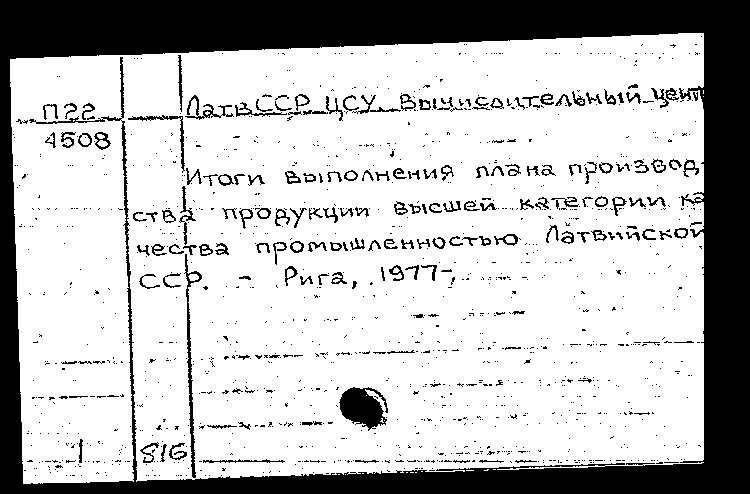 П22 ЛатвССР ЦСУ. Вычислительный цент
4508
Итоги выполнения плана производ-
ства продукции высшей категории ка
чества промышленностью Латвийской
ССР. - Рига, 1977-,
1 816